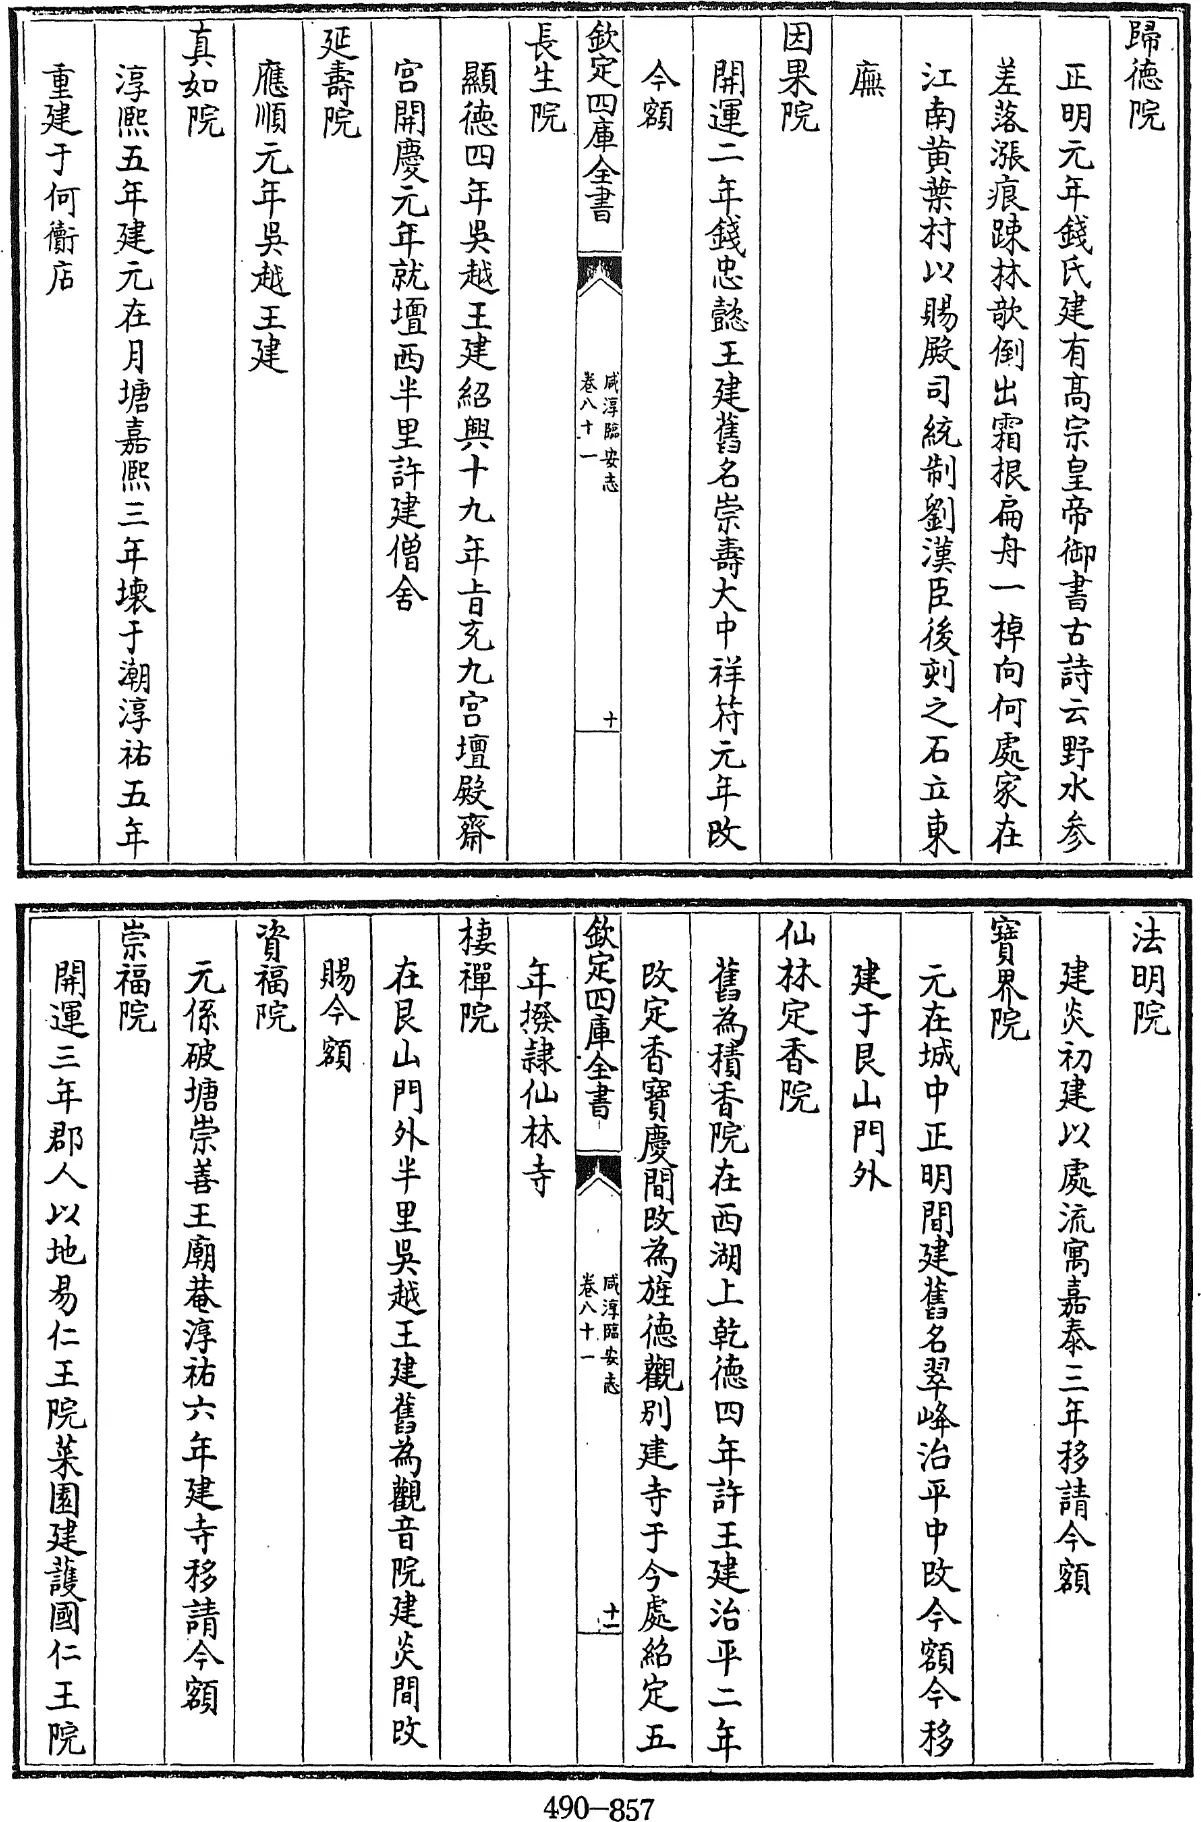 歸德院
正明元年錢氏建有髙宗皇帝御書古詩云野水參
差落漲痕踈林欹倒出霜根扁舟一棹向何處家在
江南黄葉村以賜殿司統制劉漢臣後刻之石立東
廡
因果院
開運二年錢忠懿王建舊名崇壽大中祥符元年改
今額
欽定四庫全書
咸淳臨安志
卷八十一
十
長生院
顯德四年吳越王建紹興十九年㫖充九宫壇殿齋
宫開慶元年就壇西半里許建僧舍
延壽院
應順元年吳越王建
真如院
淳熙五年建元在月塘嘉熙三年壊于潮淳祐五年
重建于何衙店
法明院
建炎初建以處流寓嘉泰三年移請今額
寶界院
元在城中正明間建舊名翠峰治平中改今額今移
建于艮山門外
仙林定香院
舊為積香院在西湖上乾德四年許王建治平二年
改定香寶慶間改為旌德觀别建寺于今處紹定五
欽定四庫全書
咸淳臨安志
卷八十一
十一
年撥隷仙林寺
棲禪院
在艮山門外半里吳越王建舊為觀音院建炎間改
賜今額
資福院
元係破塘崇善王廟菴淳祐六年建寺移請今額
崇福院
開運三年郡人以地易仁王院菜園建護國仁王院
490-857